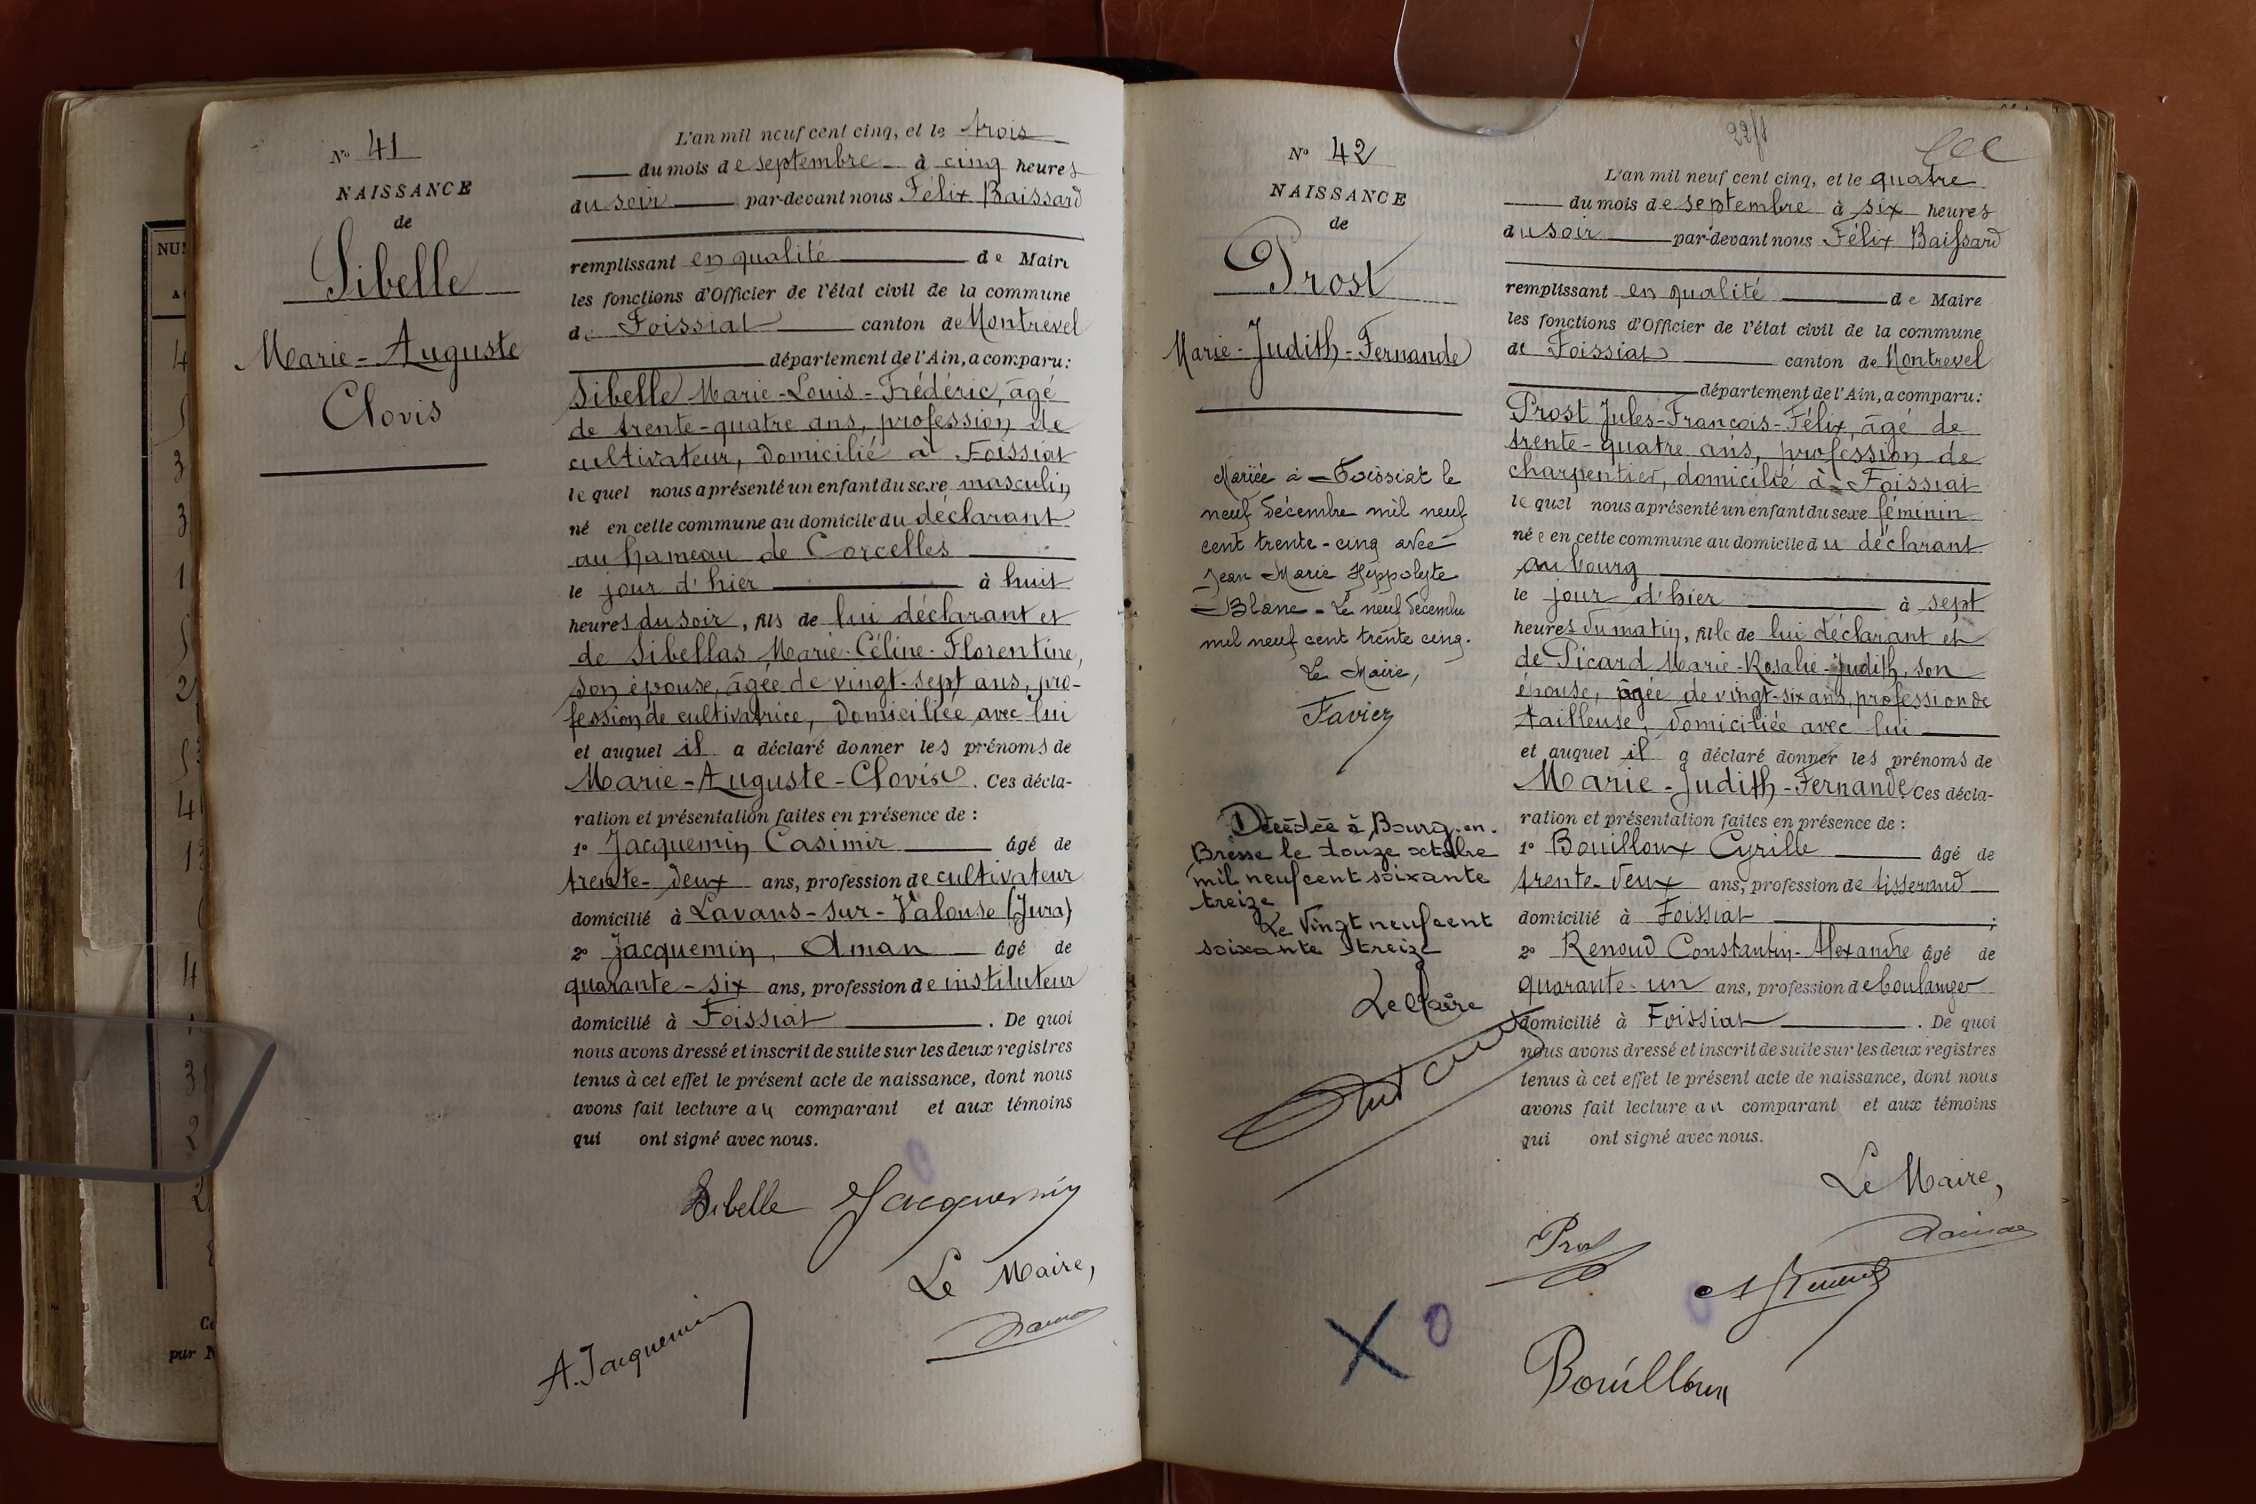 N° 41
NAISSANCE
de
Sibelle
Marie-Auguste
Clovis
L'an mil neuf cent cinq, et le trois
du mois de septembre à cinq heures
du soir par-devant nous Félix Baissard
remplissant en qualité de Maire
les fonctions d'Officier de l'état civil de la commune
de Foissiat canton de Montrevel
département de l'Ain, a comparu:
Sibelle Marie-Louis-Frédéric, âgé
de trente-quatre ans, profession de
cultivateur, domicilié à Foissiat
lequel nous a présenté un enfant du sexe masculin
né en cette commune au domicile du déclarant
au hameau de Corcelles
le jour d'hier à huit
heures du soir, fils de lui déclarant et
de Sibellas Marie-Céline-Florentine,
son épouse, âgée de vingt-sept ans, pro-
fession de cultivatrice, domiciliée avec lui
et auquel il a déclaré donner les prénoms de
Marie-Auguste-Clovis. Ces décla-
ration et présentation faites en présence de :
1° Jacquemin Casimir âgé de
trente-deux ans, profession de cultivateur
domicilié à Lavans-sur-Valouse (Jura)
2° Jacquemin, Aman âgé de
quarante-six ans, profession de instituteur
domicilié à Foissiat. De quoi
nous avons dressé et inscrit de suite sur les deux registres
tenus à cet effet le présent acte de naissance, dont nous
avons fait lecture au comparant et aux témoins
qui ont signé avec nous.
Sibelle Jacquemin
Le Maire,
A. Jacquemin
NUM
4
3
3
1
2
4
1
4
3
2
2
par M
N° 42
NAISSANCE
de
Prost
Marie-Judith-Fernande
Mariée à Foissiat le
neuf décembre mil neuf
cent trente-cinq avec
Jean Marie Hippolyte
Blanc - Le neuf décembre
mil neuf cent trente cinq.
Le Maire,
Favier
Décédée à Bourg-en-
Bresse le douze octobre
mil neuf cent soixante
treize
Le Vingt neuf cent
soixante treize
Le Maire
L'an mil neuf cent cinq, et le quatre
du mois de septembre à six heures
du soir par-devant nous Félix Baissard
remplissant en qualité de Maire
les fonctions d'Officier de l'état civil de la commune
de Foissiat canton de Montrevel
département de l'Ain, a comparu:
Prost Jules-François-Félix, âgé de
trente-quatre ans, profession de
charpentier, domicilié à Foissiat
lequel nous a présenté un enfant du sexe féminin
née en cette commune au domicile du déclarant
au bourg
le jour d'hier à sept
heures du matin, fille de lui déclarant et
de Picard Marie-Rosalie-Judith, son
épouse, âgée de vingt-six ans, profession de
tailleuse, domiciliée avec lui
et auquel il a déclaré donner les prénoms de
Marie-Judith-Fernande. Ces décla-
ration et présentation faites en présence de :
1° Bouilloux Cyrille âgé de
trente-deux ans, profession de tisserand
domicilié à Foissiat ;
2° Renoud Constantin-Alexandre âgé de
quarante-un ans, profession de boulanger
domicilié à Foissiat. De quoi
nous avons dressé et inscrit de suite sur les deux registres
tenus à cet effet le présent acte de naissance, dont nous
avons fait lecture au comparant et aux témoins
qui ont signé avec nous.
Le Maire,
Prost
Bouilloux